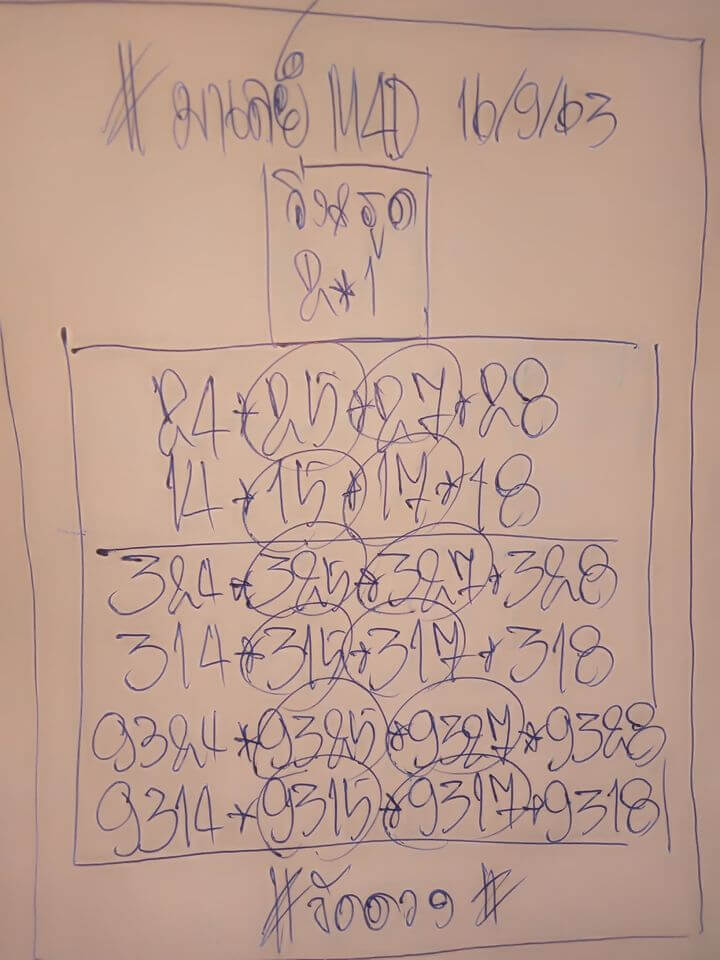 # มาเลย์ M4D 16/9/63
วิ่ง*รูด
2*1
24*25*27*28
14*15*17*18
324*325*327*328
314*315*317*318
9324*9325*9327*9328
9314*9315*9317*9318
# #